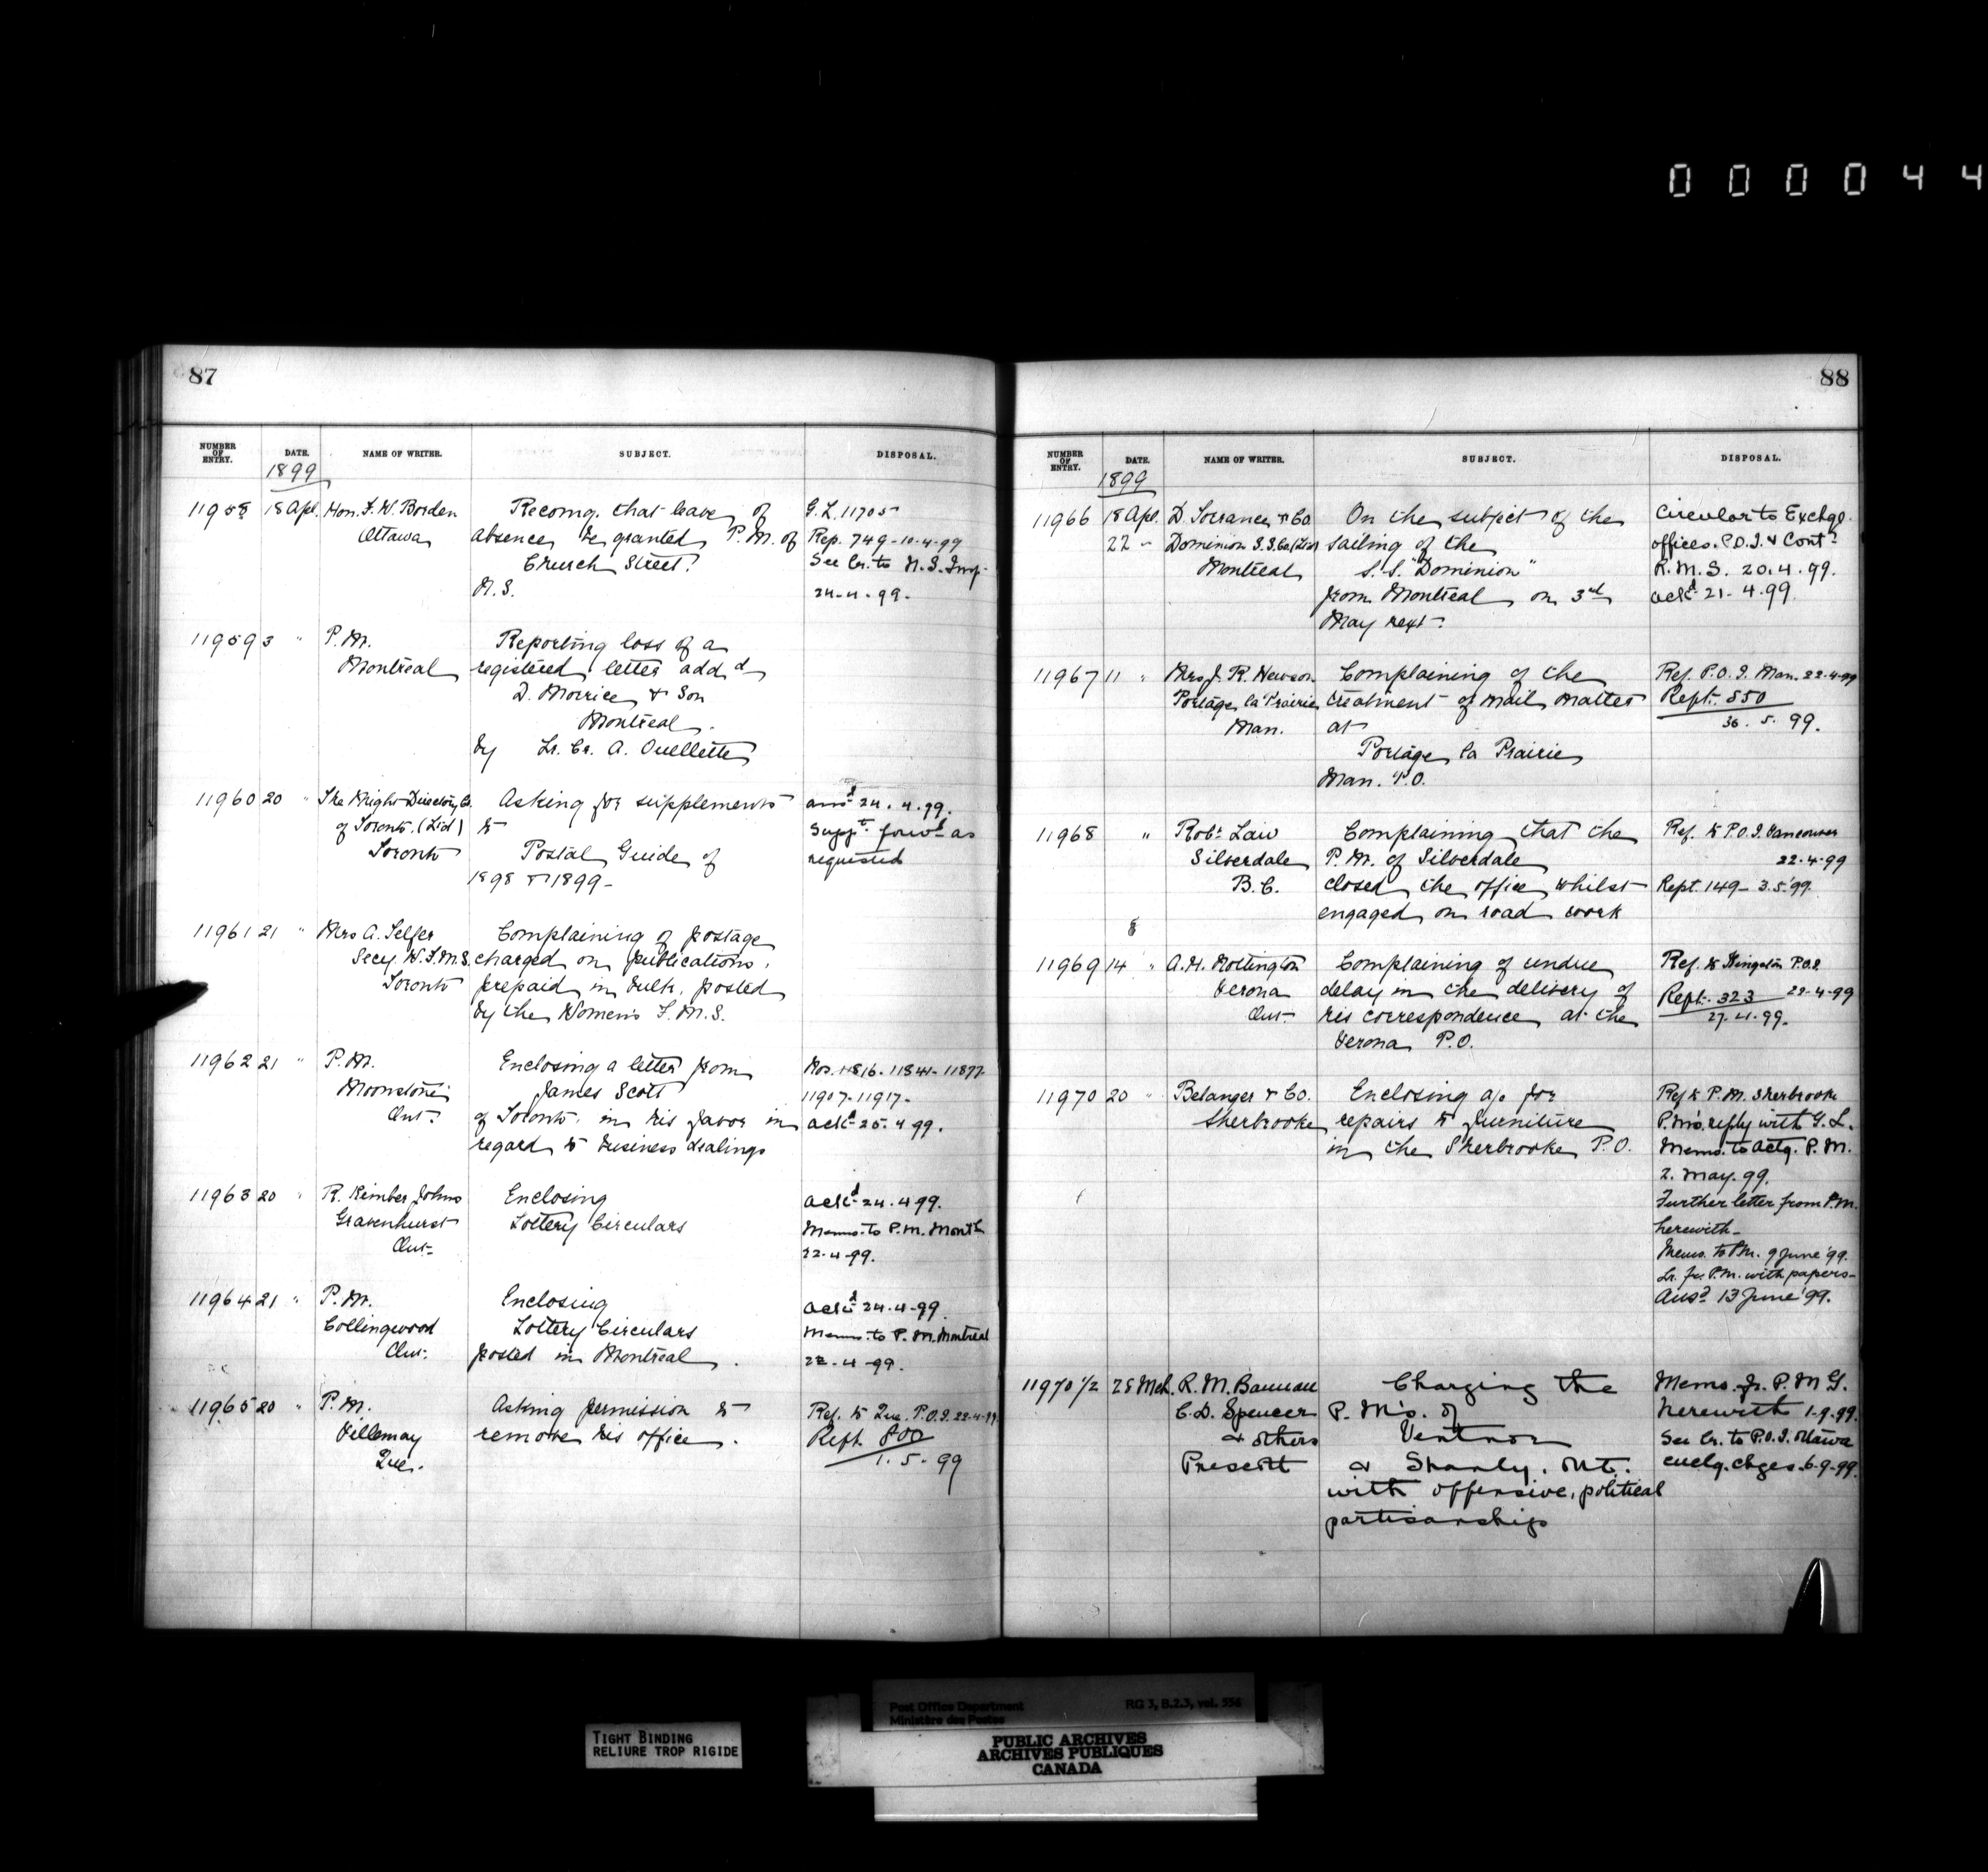 000044
87
NUMBER OF ENTRY. DATE. NAME OF WRITER. SUBJECT. DISPOSAL.
1899
11958 18 Apl. Hon. F. W. Borden Recomg. that leave of G.L. 11705
Ottawa absence be granted P.M. of Rep. 749-10-4-99
Church Street. See Lr. to N.S. Insp.
N.S. 24-4-99.
11959 3 " P.M. Reporting loss of a
Montreal registered letter add d
D. Morrice & Son
Montreal.
by Lr. Cr. A. Ouellette
11960 20 " The Might Directory Co. Asking for supplements ansd 24.4.99.
of Toronto. (Ltd) to Suppt. forwd as
Toronto Postal Guide of requested
1898 & 1899-
11961 21 " Mrs A. Telfer Complaining of postage
Secy. W.F.M.S. charged on publications,
Toronto prepaid in bulk, posted
by the Women's F.M.S.
11962 21 " P.M. Enclosing a letter from Nos. 11816-11841-11877-
Moonstone James Scott 11907-11917-
Ont. of Toronto. in his favor in ackd 25.4.99.
regard to business dealings
11963 20 " R. Kimber Johns Enclosing ackd 24.4.99.
Gravenhurst Lottery Circulars Memo. to P.M. Montl
Ont. 22-4-99.
11964 21 " P.M. Enclosing ackd 24-4-99.
Collingwood Lottery Circulars Memo. to P.M. Montreal
Ont. posted in Montreal. 22-4-99.
11965 20 " P.M. Asking permission to Ref. to Que. P.O.I. 22-4-99
Villemay remove his office. Rept. 800
Que. 1.5.99
88
NUMBER OF ENTRY. DATE. NAME OF WRITER. SUBJECT. DISPOSAL.
1899
11966 18 Apl. D. Torrance & Co. On the subject of the Circular to Exchge.
22 " Dominion S.S. Co (Ltd) sailing of the offices. P.O.I. & Contr
Montreal S.S. "Dominion" R.M.S. 20.4.99.
from Montreal on 3rd ackd 21-4.99.
May next.
11967 11 " Mrs J. R. Newson Complaining of the Ref. P.O.I. Man. 22-4-99
Portage la Prairie treatment of mail matter Rept. 850
Man. at 30.5.99.
Portage la Prairie
Man. P.O.
11968 " Robt Law Complaining that the Ref. to P.O.I. Vancouver
Silverdale P.M. of Silverdale 22-4-99
B.C. closed the office whilst Rept. 149-3.5.'99.
engaged on road work
8
11969 14 " A.H. Complaining of undue Ref. to Kingston P.O.I.
Verona delay in the delivery of Rept. 323 22-4-99
Ont. his correspondence at the 27.4.99.
Verona P.O.
11970 20 " Belanger & Co. Enclosing a/c for Ref to P.M. Sherbrooke
Sherbrooke repairs to furniture P.M's. reply with G.L.
in the Sherbrooke P.O. Memo. to Actg. P.M.
2. May. 99.
Further letter from P.M.
herewith-
Memo. to P.M. 9 June '99.
Lr. fr. P.M. with papers-
Ansd 13 June '99.
11970 1/2 28 Mch. R. M. Charging the Memo. fr. P.M.G.
C. D. Spencer P.M's. of herewith 1-9-99.
& others Ventnor See Lr. to P.O.I. Ottawa
Prescott & Shanly. Ont. enclg. chges. 6-9-99.
with offensive, political
partisanship
TIGHT BINDING
RELIURE TROP RIGIDE
Post Office Department RG 3, B.2.3, vol. 556
Ministère des Postes
PUBLIC ARCHIVES
ARCHIVES PUBLIQUES
CANADA